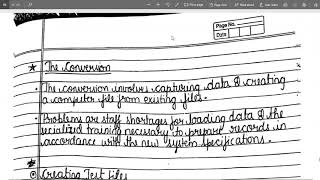 Page No.
Date
The Conversion
The conversion involves capturing data & creating
a computer file from existing files.
Problems are staff shortages for loading data & the
specialized training necessary to prepare records in
accordance with the new system specifications.
Creating Test Files